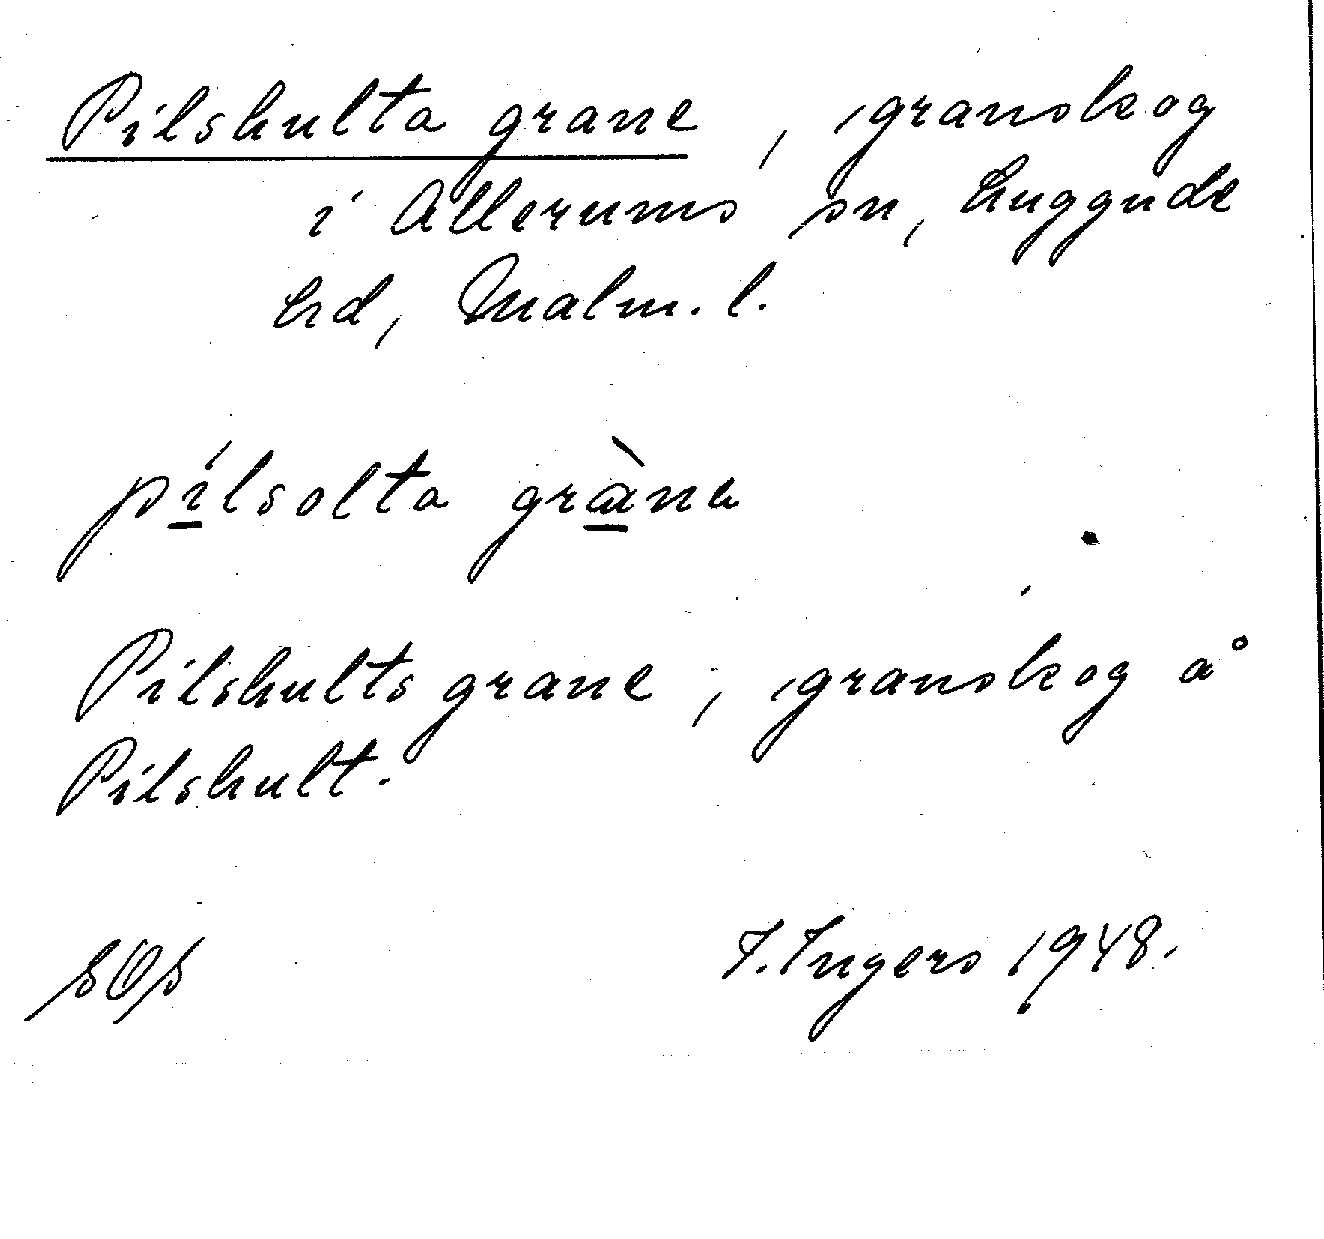 Pilshulta grane, granskog
i Allerums sn, Luggude
hd, Malm. l.
pílsolta gràna
Pilshults grane, granskog å
Pilshult.
I. Ingers 1948.